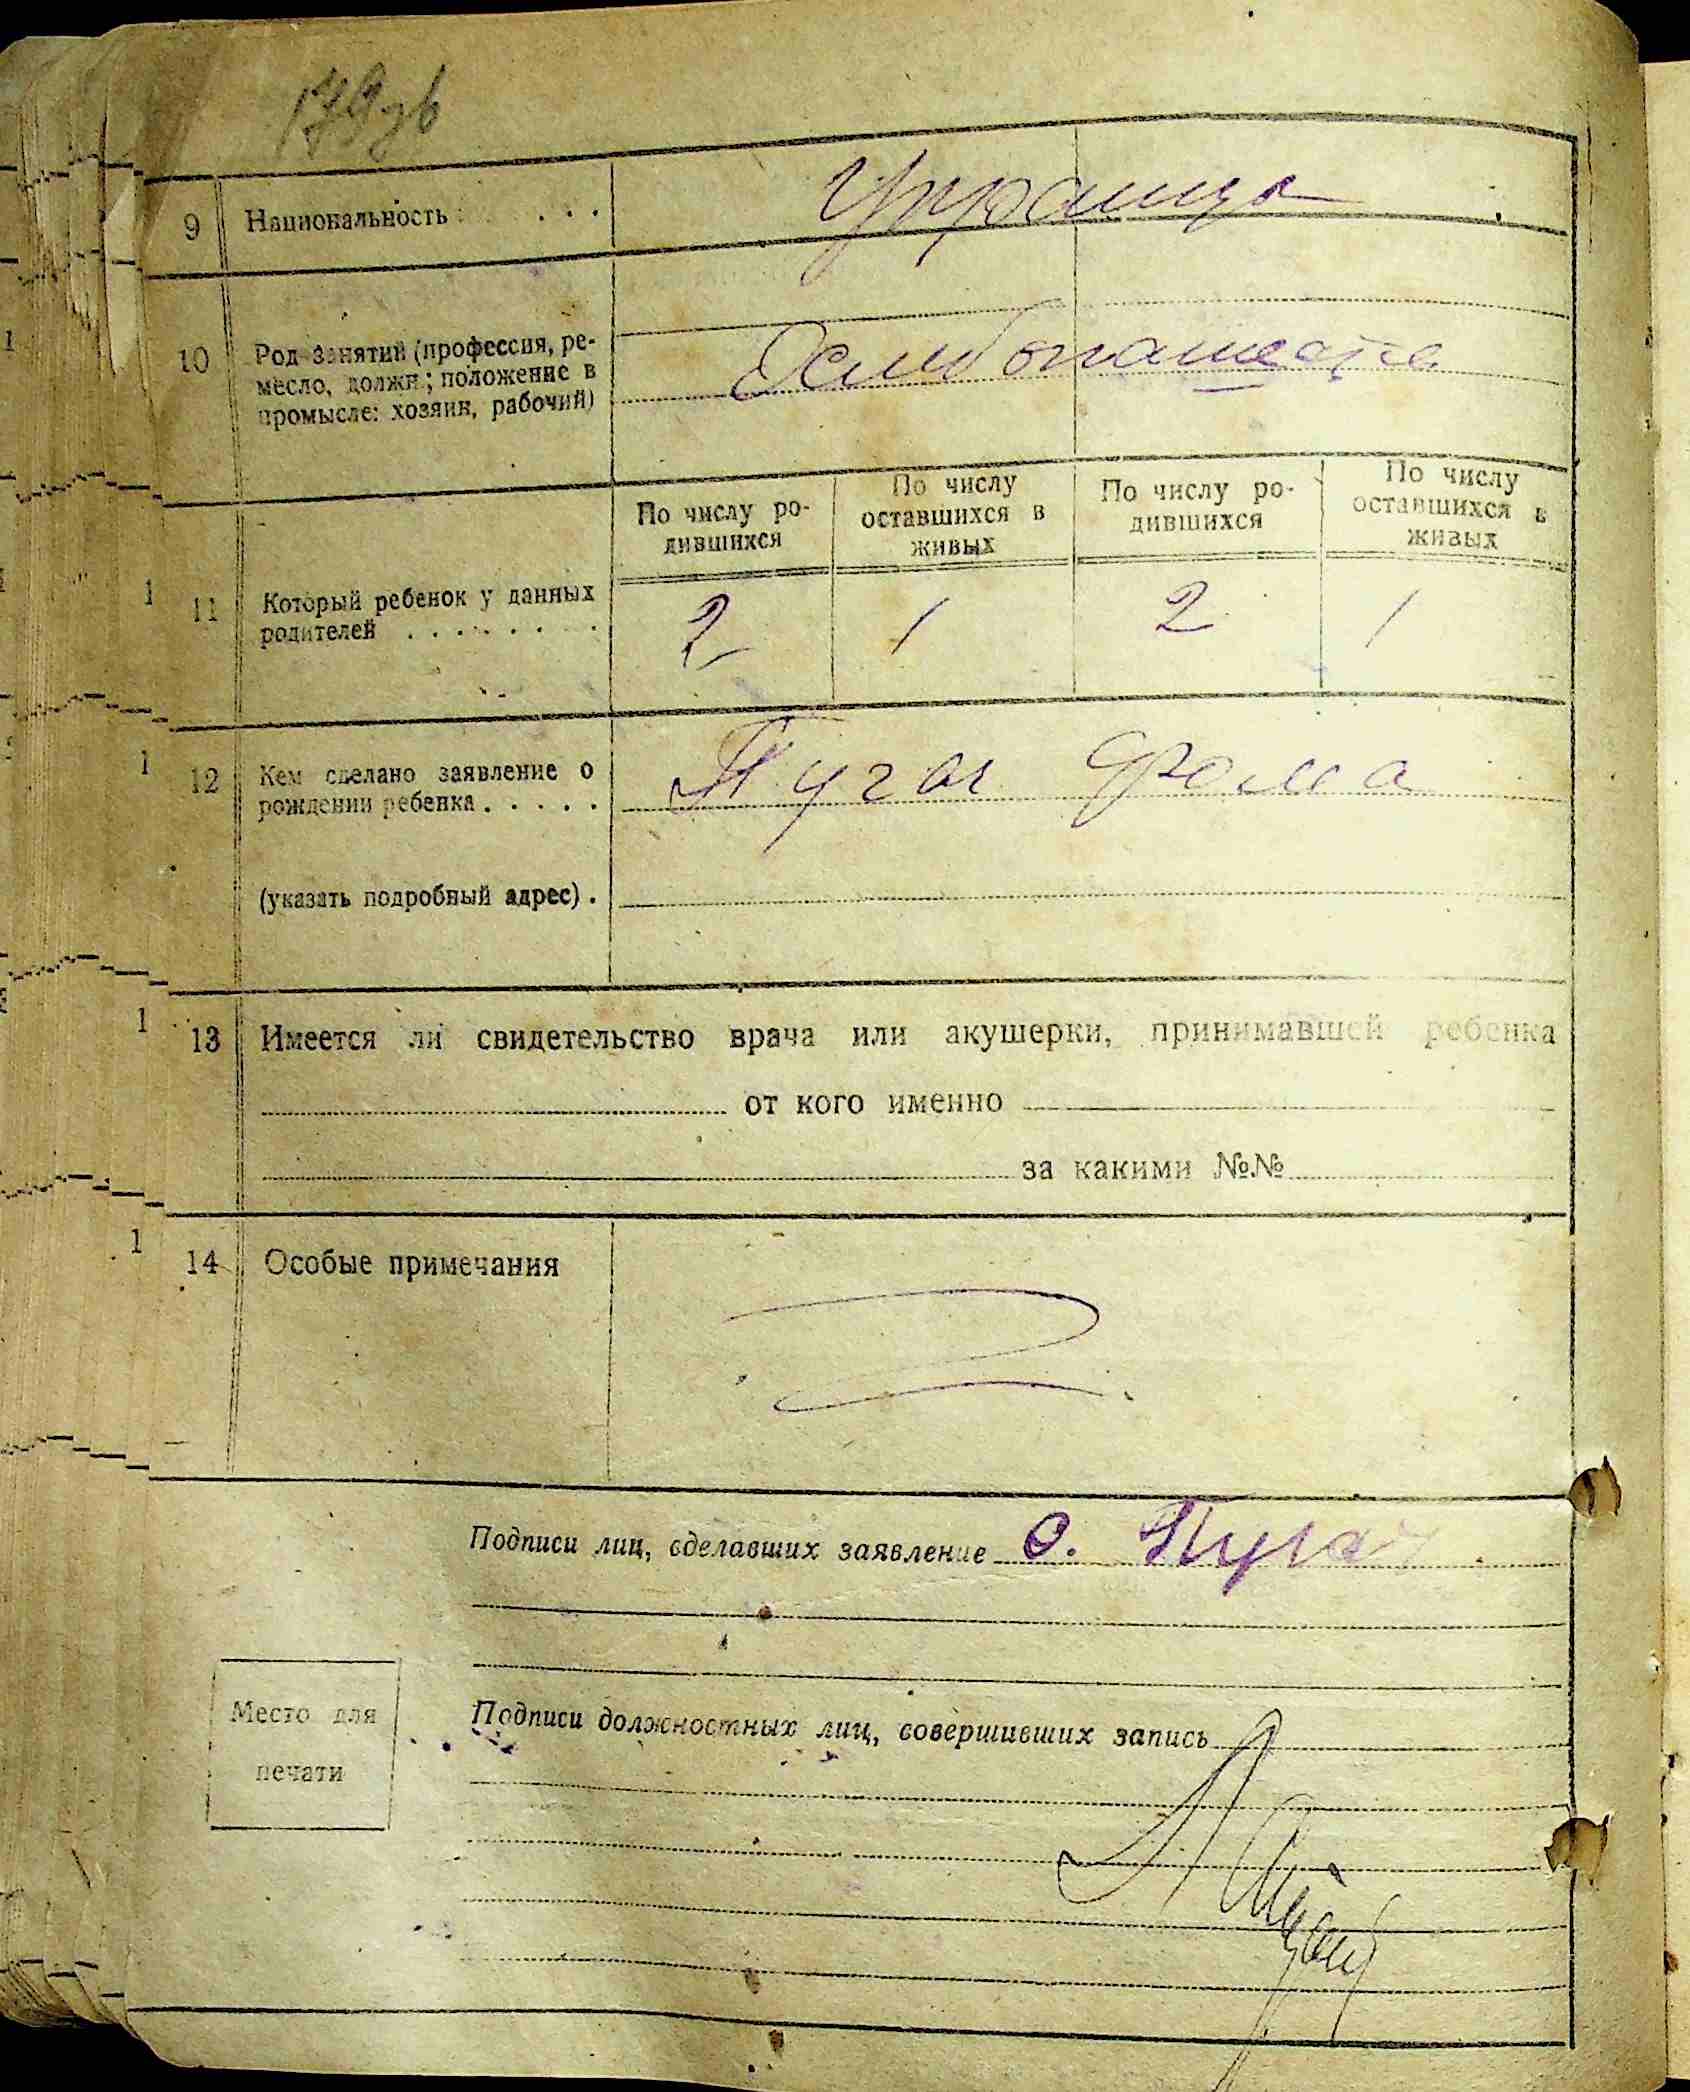 179 зв
9 Национальность . . . Українці
10 Род занятий (профессия, ре-
месло, должн.; положение в
промысле: хозяин, рабочий)
По числу ро-
дившихся
По числу
оставшихся в
живых
По числу ро-
дившихся
По числу
оставшихся в
живых
11 Который ребенок у данных
родителей . . . . . . . .
2 1 2 1
12 Кем сделано заявление о
рождении ребенка . . . . .
Пугач Фома
(указать подробный адрес) .
13 Имеется ли свидетельство врача или акушерки, принимавшей ребенка
от кого именно
за какими №№
14 Особые примечания
Подписи лиц, сделавших заявление О. Пугач
Место для
печати
Подписи должностных лиц, совершивших запись